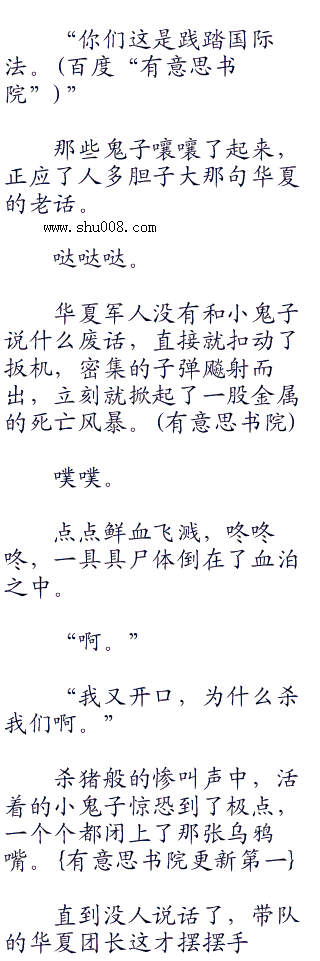 “你们这是践踏国际
法。(百度“有意思书
院”)”
那些鬼子嚷嚷了起来，
正应了人多胆子大那句华夏
的老话。
www.shu008.com
哒哒哒。
华夏军人没有和小鬼子
说什么废话，直接就扣动了
扳机，密集的子弹飚射而
出，立刻就掀起了一股金属
的死亡风暴。(有意思书院)
噗噗。
点点鲜血飞溅，咚咚
咚，一具具尸体倒在了血泊
之中。
“啊。”
“我又开口，为什么杀
我们啊。”
杀猪般的惨叫声中，活
着的小鬼子惊恐到了极点，
一个个都闭上了那张乌鸦
嘴。{有意思书院更新第一}
直到没人说话了，带队
的华夏团长这才摆摆手